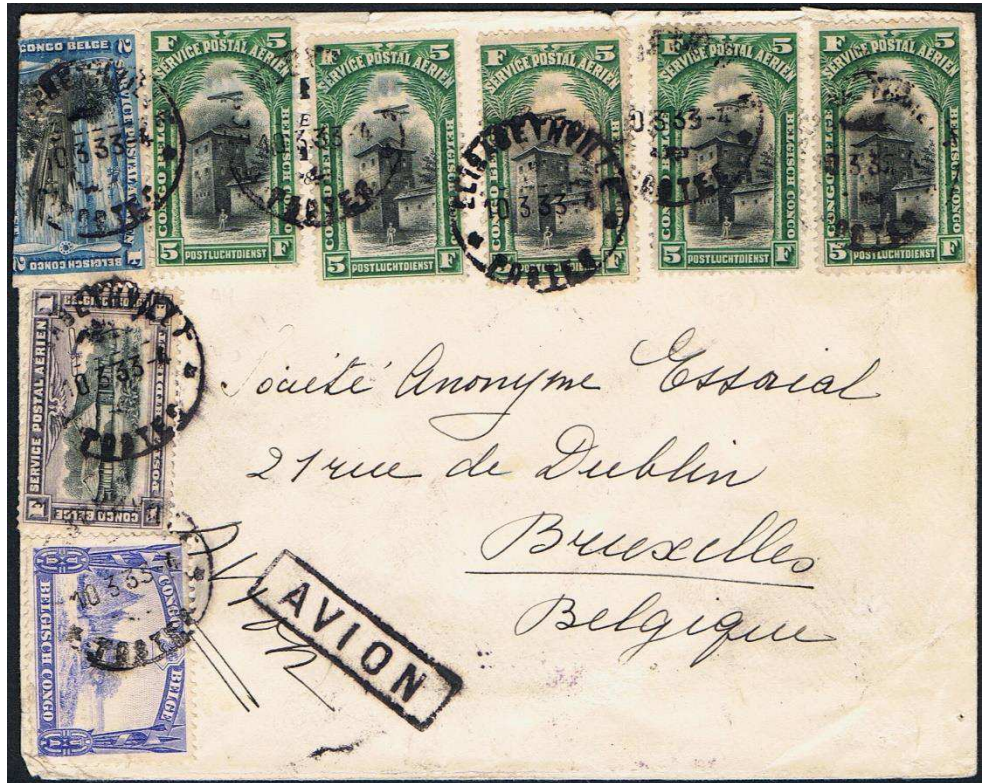 CONGO BELGE
2 SERVICE POSTAL AÉRIEN F
F 2
BELGISCH CONGO
F 5
SERVICE POSTAL AÉRIEN
CONGO BELGE
BELGISCH CONGO
5 POSTLUCHTDIENST F
F 5
SERVICE POSTAL AÉRIEN
CONGO BELGE
BELGISCH CONGO
5 POSTLUCHTDIENST F
F 5
SERVICE POSTAL AÉRIEN
CONGO BELGE
BELGISCH CONGO
5 POSTLUCHTDIENST F
F 5
SERVICE POSTAL AÉRIEN
CONGO BELGE
BELGISCH CONGO
5 POSTLUCHTDIENST F
F 5
SERVICE POSTAL AÉRIEN
CONGO BELGE
BELGISCH CONGO
5 POSTLUCHTDIENST F
ELISABETHVILLE
10 3 33-4
POSTES
1 BELGISCH CONGO F
SERVICE POSTAL AÉRIEN
F CONGO BELGE 1
10 3 33-4
CONGO BELGE
BELGISCH CONGO
10 3 33-4
Société Anonyme Essorial
21 rue de Dublin
Bruxelles
Belgique
Avion
AVION